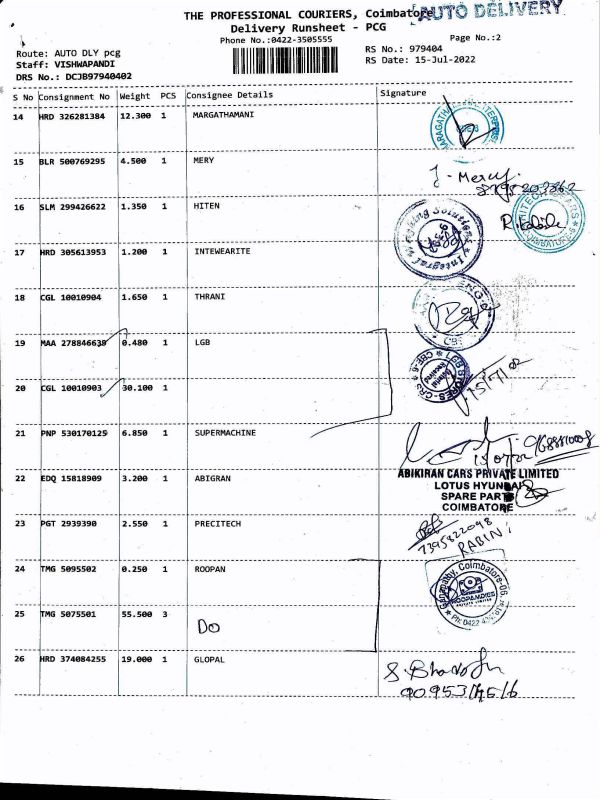 THE PROFESSIONAL COURIERS, Coimbatore
AUTO DELIVERY
Delivery Runsheet - PCG
Phone No.:0422-3505555
Page No.:2
Route: AUTO DLY pcg
Staff: VISHWAPANDI
DRS No.: DCJB97940402
RS No.: 979404
RS Date: 15-Jul-2022
S No Consignment No Weight PCS Consignee Details Signature
14 HRD 326281384 12.300 1 MARGATHAMANI
15 BLR 500769295 4.500 1 MERY
J - Mercy
16 SLM 299426622 1.350 1 HITEN
17 HRD 305613953 1.200 1 INTEWEARITE
Integral Weighing Solutions
18 CGL 10010904 1.650 1 THRANI
CBE
19 MAA 278846639 0.480 1 LGB
LGB STORES-CRS CBE-6
20 CGL 10010903 30.100 1
21 PNP 530170129 6.850 1 SUPERMACHINE
22 EDQ 15818909 3.200 1 ABIGRAN
ABIKIRAN CARS PRIVATE LIMITED
LOTUS HYUNDAI
SPARE PARTS
COIMBATORE
23 PGT 2939390 2.550 1 PRECITECH
7395822098
RABIN
24 TMG 5095502 0.250 1 ROOPAN
Coimbatore-06.
25 TMG 5075501 55.500 3
DO
26 HRD 374084255 19.000 1 GLOPAL